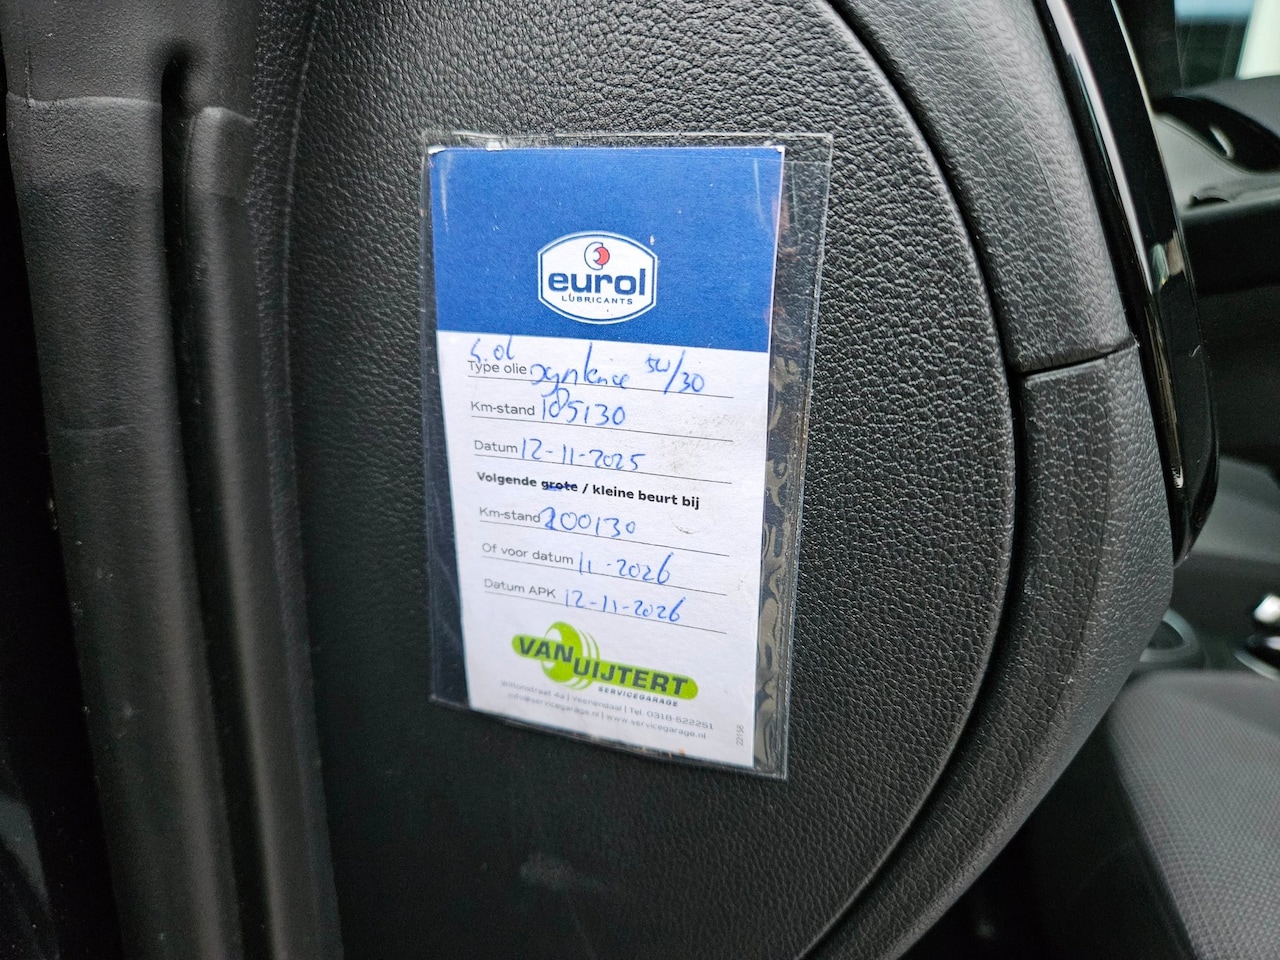 eurol
LUBRICANTS
Type olie 5W/30
Km-stand 185130
Datum 12-11-2025
Volgende grote / kleine beurt bij
Km-stand 200130
Of voor datum 11-2026
Datum APK 12-11-2026
VAN UIJTERT
SERVICEGARAGE
Wiltonstraat 4a | Veenendaal | Tel. 0318-522251
info@servicegarage.nl | www.servicegarage.nl
22156